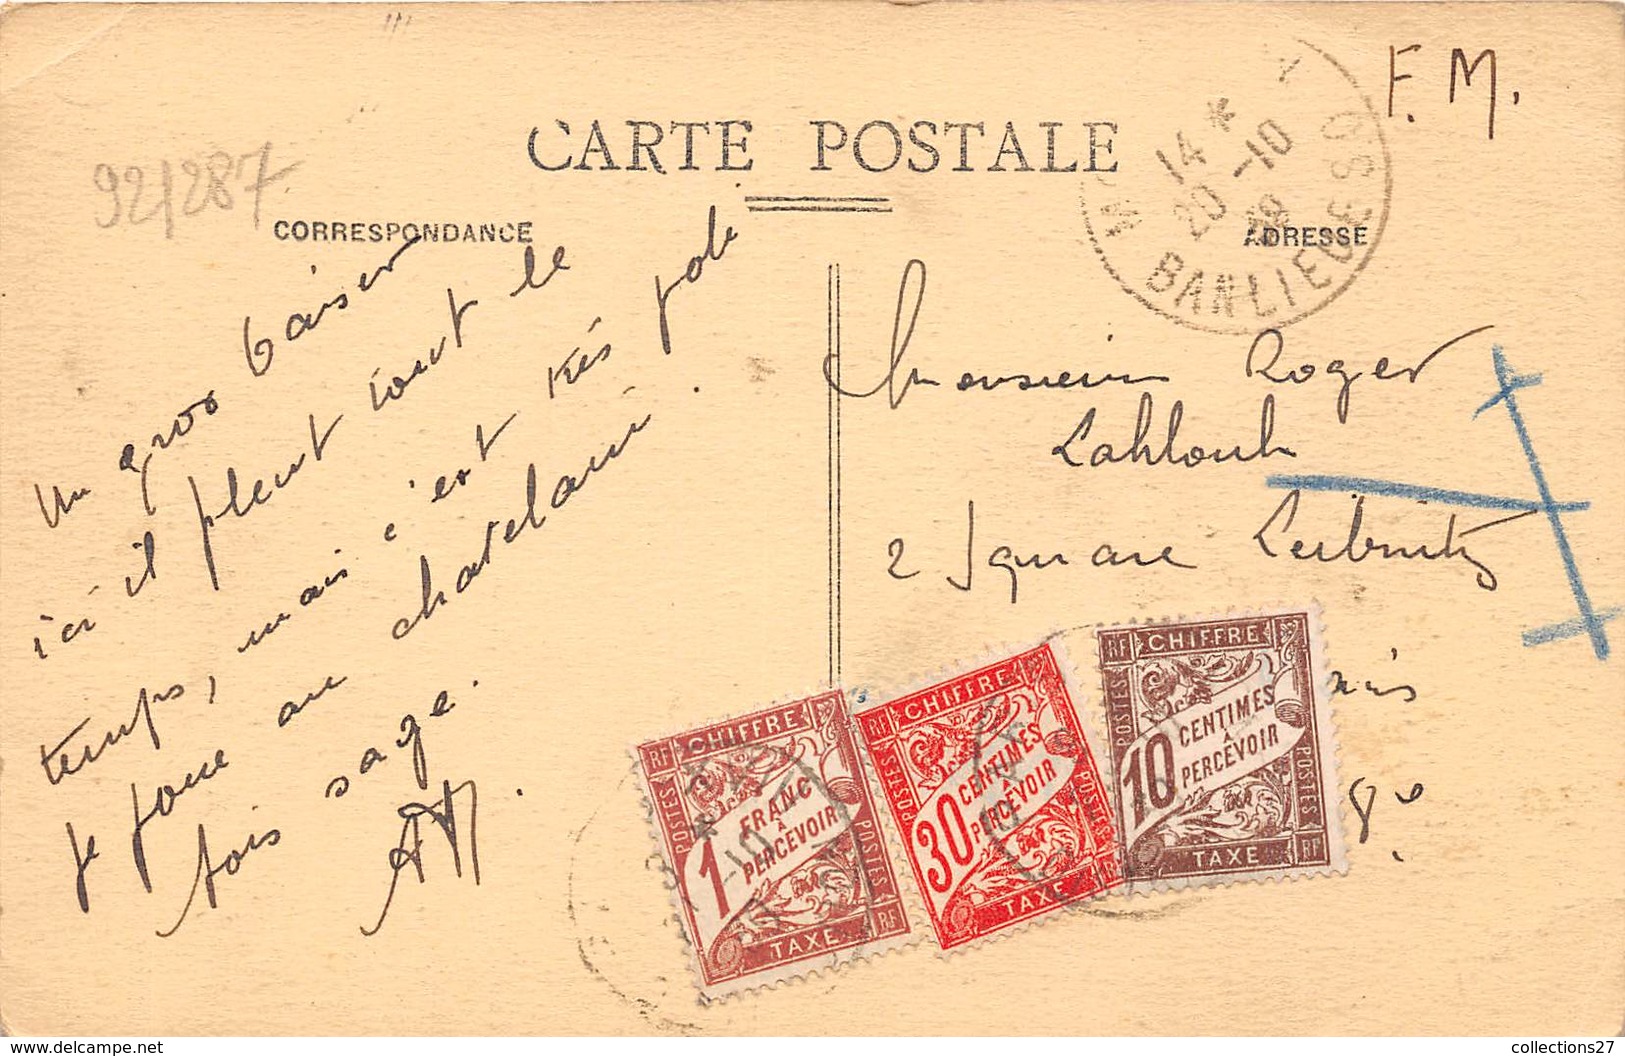 F. M.
CARTE POSTALE
92/287
CORRESPONDANCE
ADRESSE
14 *
20 -10
BANLIEUE S.O
Un gros baiser
ici il pleut tout le
temps, mais c'est très joli
Je joue au chatelain.
sois sage.
Monsieur Roger
Lahlouh
2 Square Leibnitz
8e
RF CHIFFRE
POSTES
1 FRANC
À
PERCEVOIR
POSTES
TAXE RF
RF CHIFFRE
POSTES
30 CENTIMES
À
PERCEVOIR
POSTES
TAXE RF
RF CHIFFRE
POSTES
10 CENTIMES
À
PERCEVOIR
POSTES
TAXE RF
www.delcampe.net
collections27